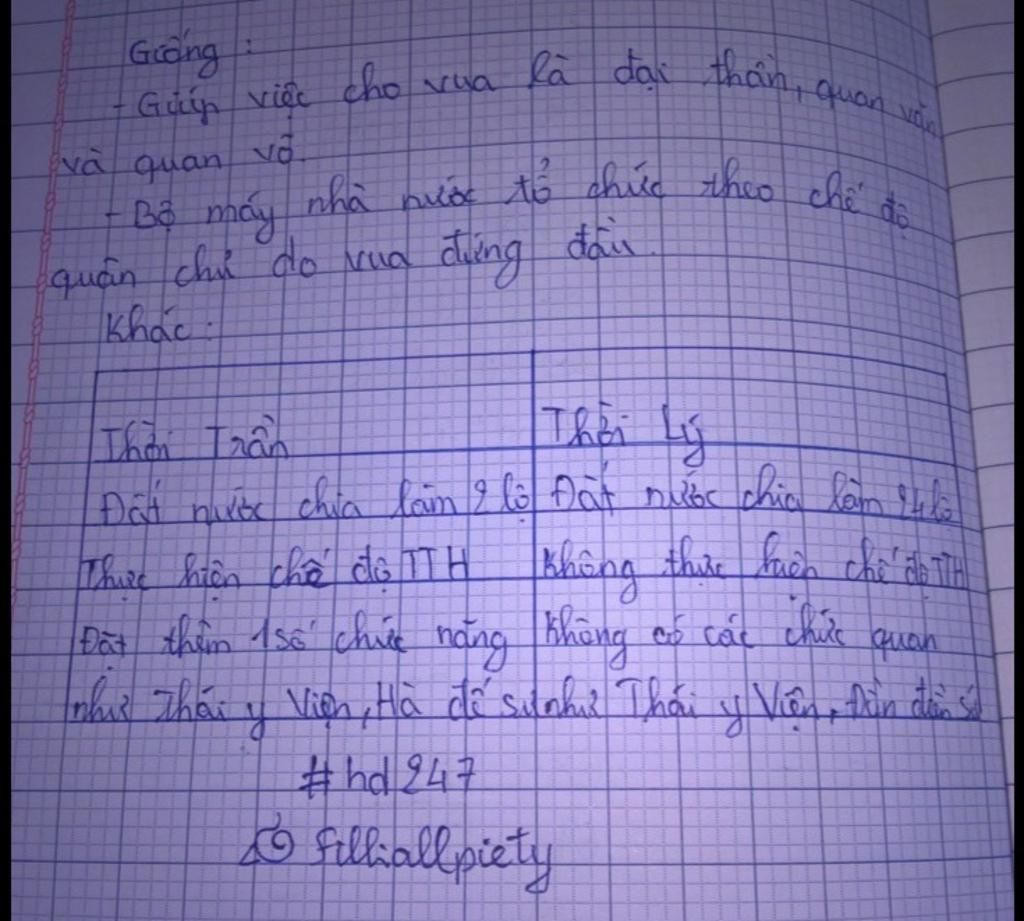 Giống :
- Giúp việc cho vua là đại thần, quan văn
và quan võ.
- Bộ máy nhà nước tổ chức theo chế độ
quân chủ do vua đứng đầu.
Khác :
Thời Trần
Thời Lý
Đất nước chia làm 2 lộ
Đất nước chia làm 24 lộ
Thực hiện chế độ TTH
Không thực hiện chế độ TTH
Đặt thêm 1 số chức năng
Không có các chức quan
như Thái y Viện, Hà đê sứ
như Thái y Viện, đồn điền sứ
#hd247
filliallpiety